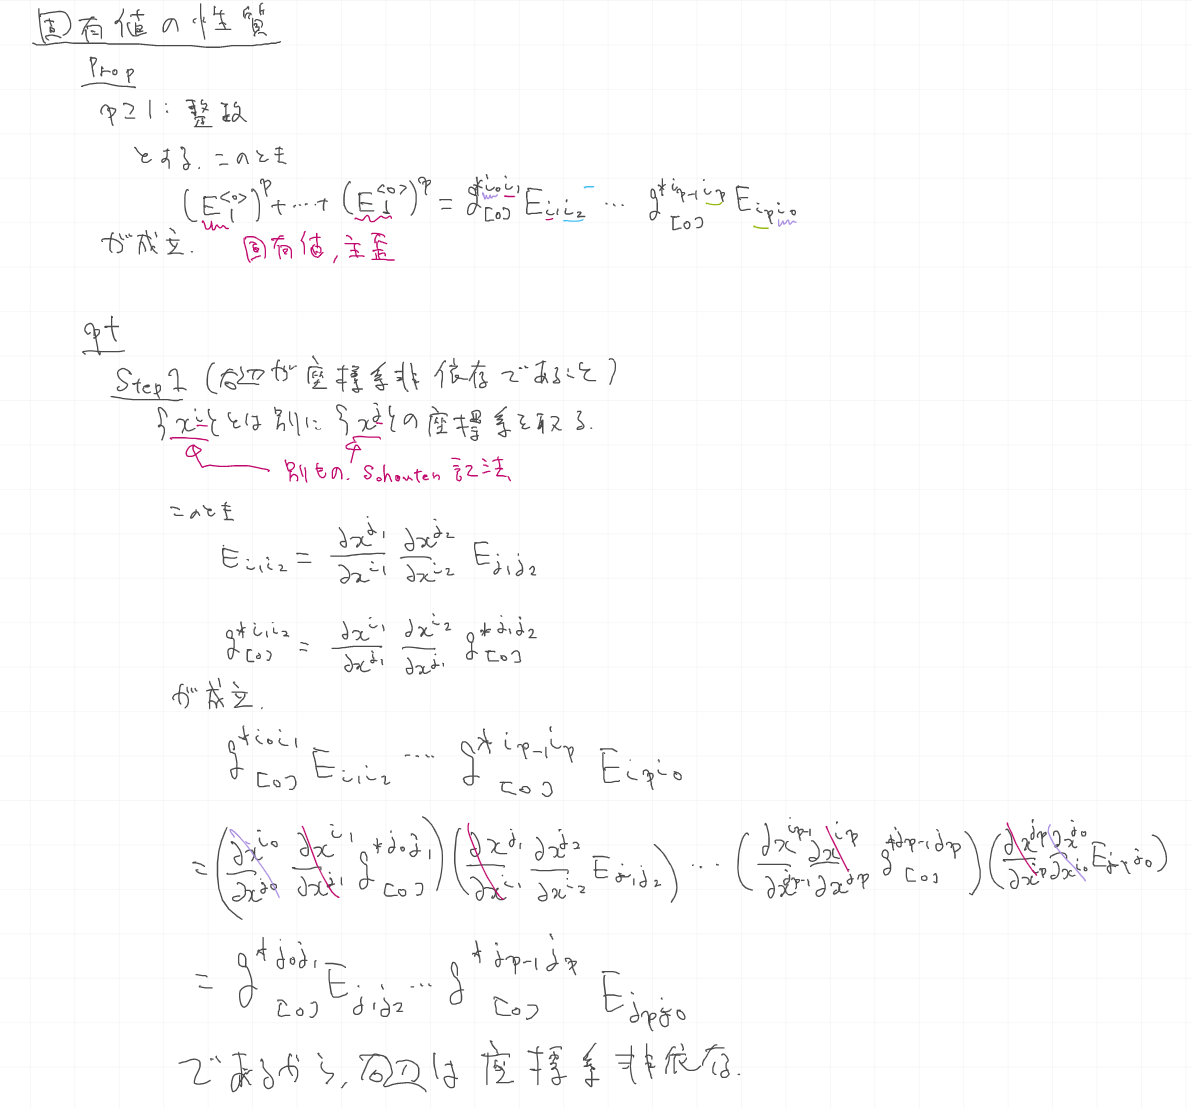 固有値の性質
Prop
p≧1:整数
とする.このとき
(E_1^{<0>})^p+…+(E_d^{<0>})^p = g_{[0]}^{*i_0i_1} E_{i_1i_2} … g_{[0]}^{*i_{p-1}i_p} E_{i_pi_0}
が成立. 固有値,主歪
pf
Step1 (右辺が座標系非依存であること)
{x^i}とは別に{x^j}の座標系を取る.
別もの.Schouten記法
このとき
E_{i_1i_2} = ∂x^{j_1}/∂x^{i_1} ∂x^{j_2}/∂x^{i_2} E_{j_1j_2}
g_{[0]}^{*i_1i_2} = ∂x^{i_1}/∂x^{j_1} ∂x^{i_2}/∂x^{j_1} g_{[0]}^{*j_1j_2}
が成立.
g_{[0]}^{*i_0i_1} E_{i_1i_2} … g_{[0]}^{*i_{p-1}i_p} E_{i_pi_0}
= (∂x^{i_0}/∂x^{j_0} ∂x^{i_1}/∂x^{j_1} g_{[0]}^{*j_0j_1}) (∂x^{j_1}/∂x^{i_1} ∂x^{j_2}/∂x^{i_2} E_{j_1j_2}) … (∂x^{i_{p-1}}/∂x^{j_{p-1}} ∂x^{i_p}/∂x^{j_p} g_{[0]}^{*j_{p-1}j_p}) (∂x^{j_p}/∂x^{i_p} ∂x^{j_0}/∂x^{i_0} E_{j_pj_0})
= g_{[0]}^{*j_0j_1} E_{j_1j_2} … g_{[0]}^{*j_{p-1}j_p} E_{j_pj_0}
であるから,右辺は座標系非依存.